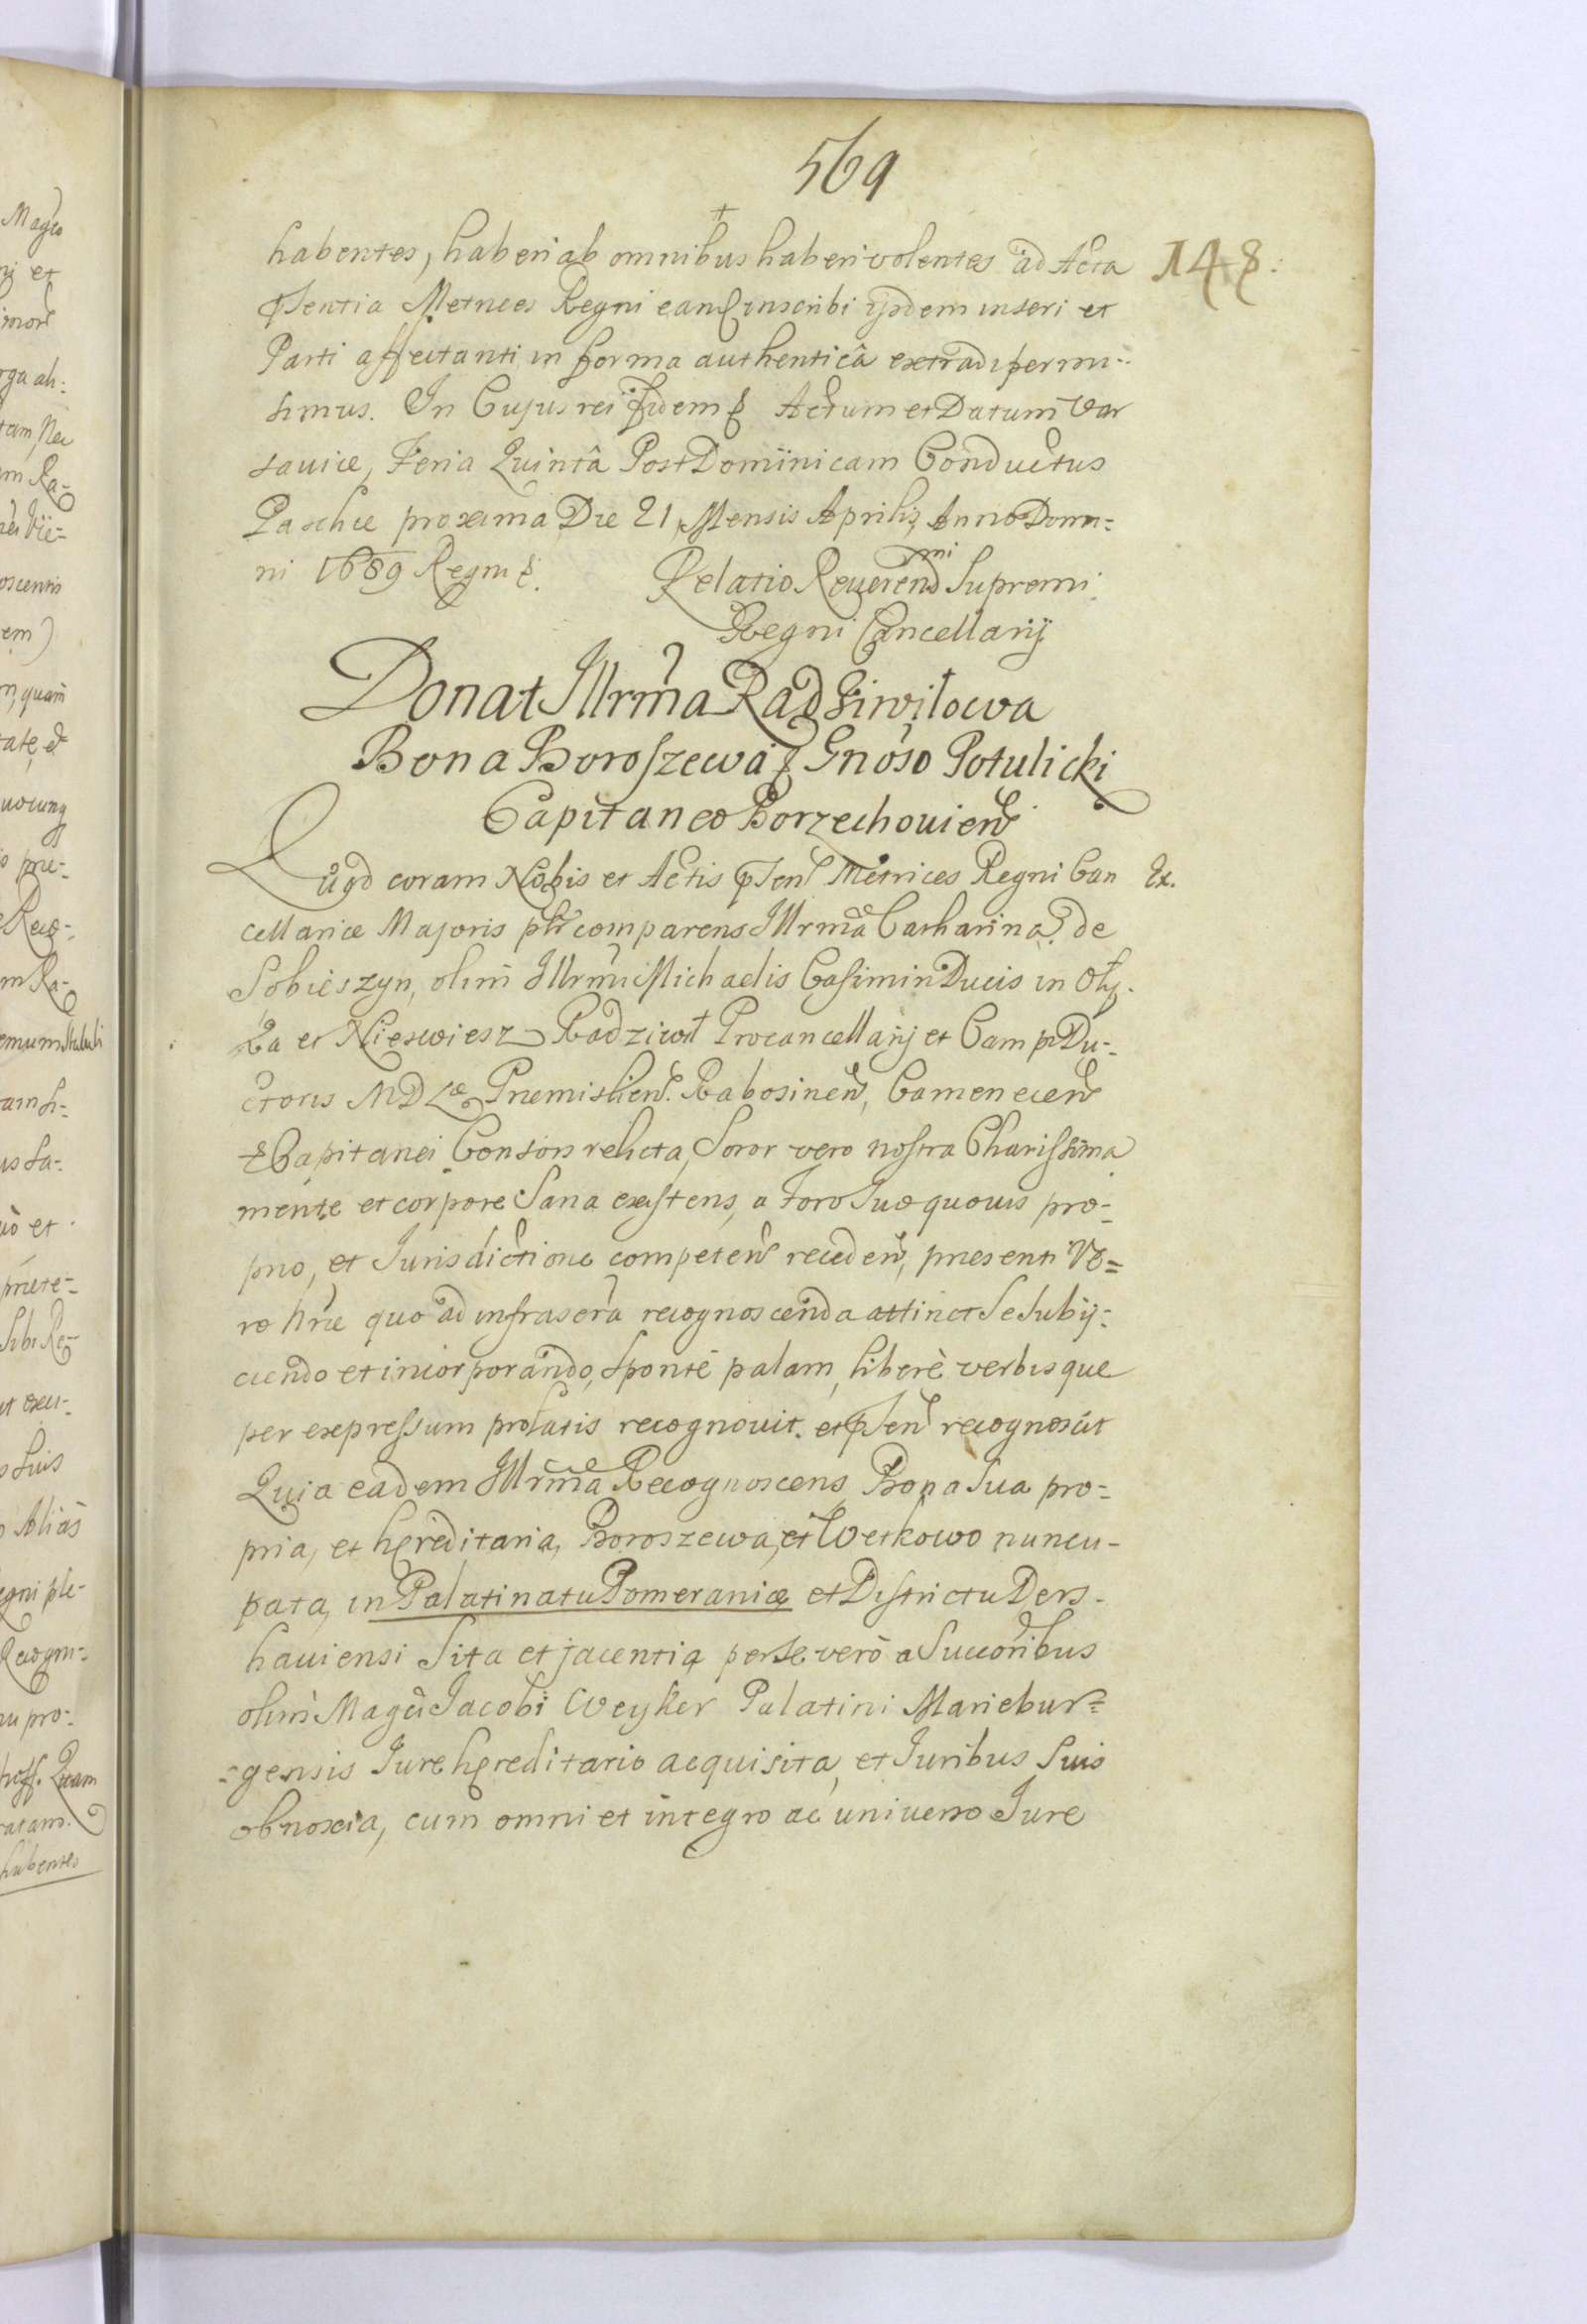 569
habentes, haberi ab omnibus haberi volentes ad Acta 148:
pñsentia Metrices Regni eand inscribi ijsdem inseri et
Parti affectanti in forma authenticâ extradi permi-
simus. In Cujus rei fidem & Actum et Datum Var
saviæ, Feria Quintâ Post Dominicam Conductus
Paschæ proxima Die 21, Mensis Aprilis, Anno Domi=
ni 1689 Regni &. Relatio Reverend mi Supremi
Regni Cancellarij
Donat Illrma Radziwiłowa
Bona Boroszewa & Gnoso Potulicki
Capitaneo Borzechouien
Quod coram Nobis et Actis pñsen Metrices Regni Can Ex.
cellariæ Majoris plr comparens Illrma Catharina de
Sobieszyn, olim Illrmi Michaelis Casimiri Ducis in Oły-
ka et Nieswiesz Radziwił Procancellarij et Camp Du-
ctoris MDLæ Premislien. Rabosinen, Camenecen
& Capitanei Consors relicta, Soror vero nostra Charissima
mente et corpore Sana existens, a Foro Suo quovis pro-
prio, et Jurisdictione competen receden, præsenti Ve=
ro hñe quo ad infrascra recognoscenda attinet Se Subij-
ciendo et incorporando, Sponte palam, liberè verbisque
per expressum prolatis recognovit. et pñsen recognoscit
Quia eadem Illrma Recognoscens Bona Sua pro-
pria, et hæreditaria, Boroszewa, et Wetkowo nuncu-
pata, in Palatinatu Pomeraniæ et Districtu Ders-
haviensi Sita et jacentia per Se verò a Succoribus
olim Magci Jacobi Weyher Palatini Mariebur=
=gensis Jure hæreditario acquisita, et Juribus Suis
obnoxia, cum omni et integro ac universo Jure